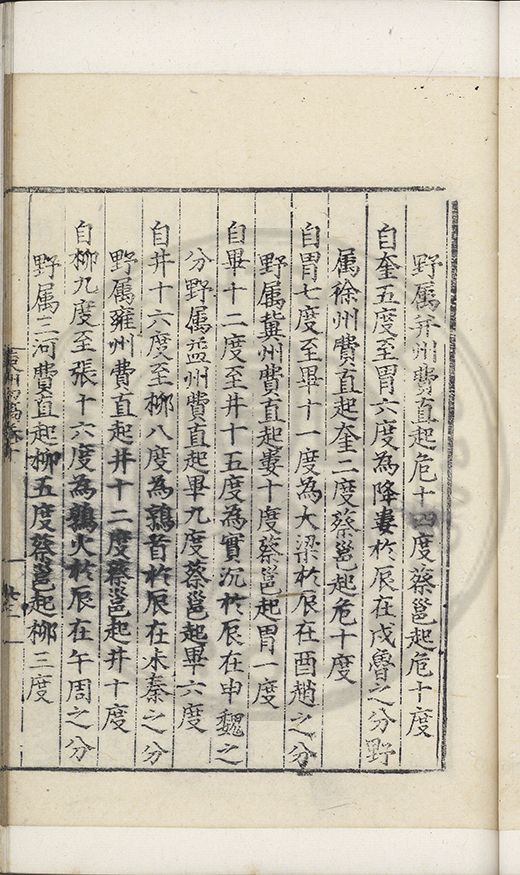 野属并州費直起危十四度蔡邕起危十度
自奎五度至胃六度為降婁於辰在戌魯之分野
属徐州費直起奎二度蔡邕起危十度
自胃七度至畢十一度為大梁於辰在酉趙之分
野属冀州費直起婁十度蔡邕起胃一度
自畢十二度至井十五度為實沉於辰在申魏之
分野属益州費直起畢九度蔡邕起畢六度
自井十六度至柳八度為鶉首於辰在未秦之分
野属雍州費直起井十二度蔡邕起井十度
自柳九度至張十六度為鶉火於辰在午周之分
野属三河費直起柳五度蔡邕起柳三度